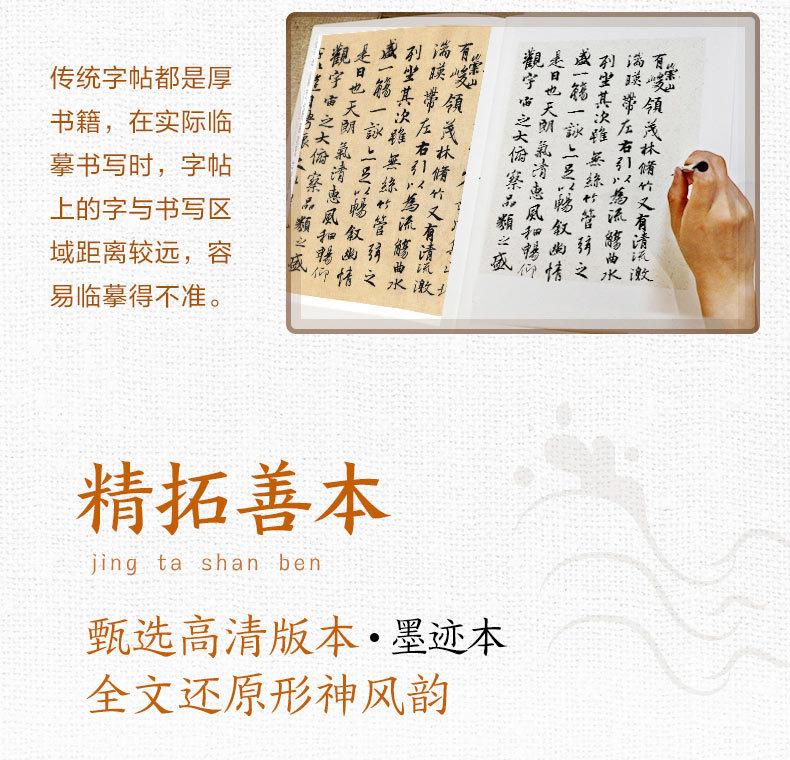 传统字帖都是厚
书籍，在实际临
摹书写时，字帖
上的字与书写区
域距离较远，容
易临摹得不准。
有崇山
峻領茂林脩竹又有清流激
湍暎帶左右引以為流觴曲水
列坐其次雖無絲竹管弦之
盛一觴一詠上足以暢叙幽情
是日也天朗氣清惠風和暢仰
觀宇宙之大俯察品類之盛
有崇山
峻領茂林脩竹又有清流激
湍暎帶左右引以為流觴曲水
列坐其次雖無絲竹管弦之
盛一觴一詠上足以暢叙幽情
是日也天朗氣清惠風和暢仰
觀宇宙之大俯察品類之盛
精拓善本
jing ta shan ben
甄选高清版本·墨迹本
全文还原形神风韵